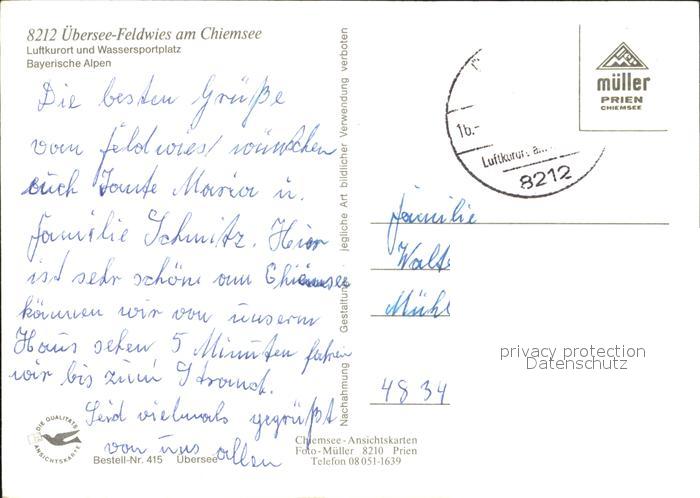 8212 Übersee-Feldwies am Chiemsee
Luftkurort und Wassersportplatz
Bayerische Alpen
Die besten Grüße
vom Feldwies/ wünschen
euch Tante Maria u.
Familie Schmitz. Hier
ist sehr schön am Chiemsee
können wir von unserm
Haus sehen 5 Minuten fahren
wir bis zum Strand.
Seid vielmals gegrüßt
von uns allen
DIE QUALITÄTS
ANSICHTSKARTE
Bestell-Nr. 415 Übersee
Nachahmung Gestaltung jegliche Art bildlicher Verwendung verboten
Chiemsee-Ansichtskarten
Foto-Müller 8210 Prien
Telefon 08051-1639
müller
PRIEN
CHIEMSEE
1b.-
Luftkurort a...
8212
Familie
Walt
Mühl
4834
privacy protection
Datenschutz